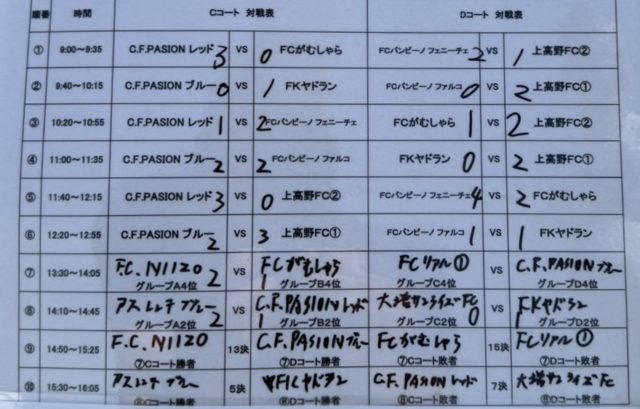 順番 時間 Cコート 対戦表 Dコート 対戦表
① 9:00～9:35 C.F.PASION レッド 3 VS 0 FCがむしゃら FCバンビーノ フェニーチェ 2 VS 1 上高野FC②
② 9:40～10:15 C.F.PASION ブルー 0 VS 1 FKヤドラン FCバンビーノ ファルコ 0 VS 2 上高野FC①
③ 10:20～10:55 C.F.PASION レッド 1 VS 2 FCバンビーノ フェニーチェ FCがむしゃら 1 VS 2 上高野FC②
④ 11:00～11:35 C.F.PASION ブルー 2 VS 2 FCバンビーノ ファルコ FKヤドラン 0 VS 2 上高野FC①
⑤ 11:40～12:15 C.F.PASION レッド 3 VS 0 上高野FC② FCバンビーノ フェニーチェ 4 VS 2 FCがむしゃら
⑥ 12:20～12:55 C.F.PASION ブルー 2 VS 3 上高野FC① FCバンビーノ ファルコ 1 VS 1 FKヤドラン
⑦ 13:30～14:05 F.C. N1120 2 VS 1 FCがむしゃら FCリアル① VS C.F.PASION ブルー
グループA4位 グループB4位 グループC4位 グループD4位
⑧ 14:10～14:45 アスレンチ ブルー 2 VS 1 C.F.PASION レッド 大場サンライズFC 0 VS 1 FKヤドラン
グループA2位 グループB2位 グループC2位 グループD2位
⑨ 14:50～15:25 F.C. N1120 13決 C.F.PASION ブルー FCがむしゃら 15決 FCリアル①
⑦Cコート勝者 ⑦Dコート勝者 ⑦Cコート敗者 ⑦Dコート敗者
⑩ 15:30～16:05 アスレンチ ブルー 5決 FKヤドラン C.F.PASION レッド 7決 大場サンライズFC
⑧Cコート勝者 ⑧Dコート勝者 ⑧Cコート敗者 ⑧Dコート敗者